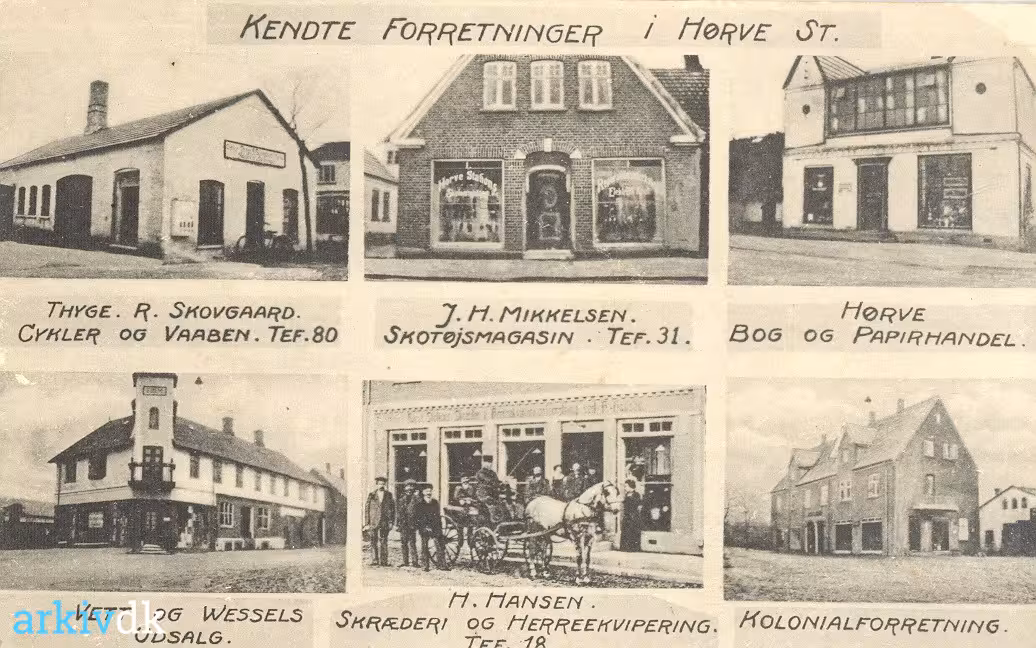 KENDTE FORRETNINGER i HØRVE ST.
THYGE. R. SKOVGAARD.
CYKLER OG VAABEN. TEF. 80
J. H. MIKKELSEN.
SKOTØJSMAGASIN . TEF. 31.
HØRVE
BOG OG PAPIRHANDEL.
Hørve
OG WESSELS
UDSALG.
H. HANSEN.
SKRÆDERI OG HERREEKVIPERING.
TEF. 18
KOLONIALFORRETNING.
arkiv.dk